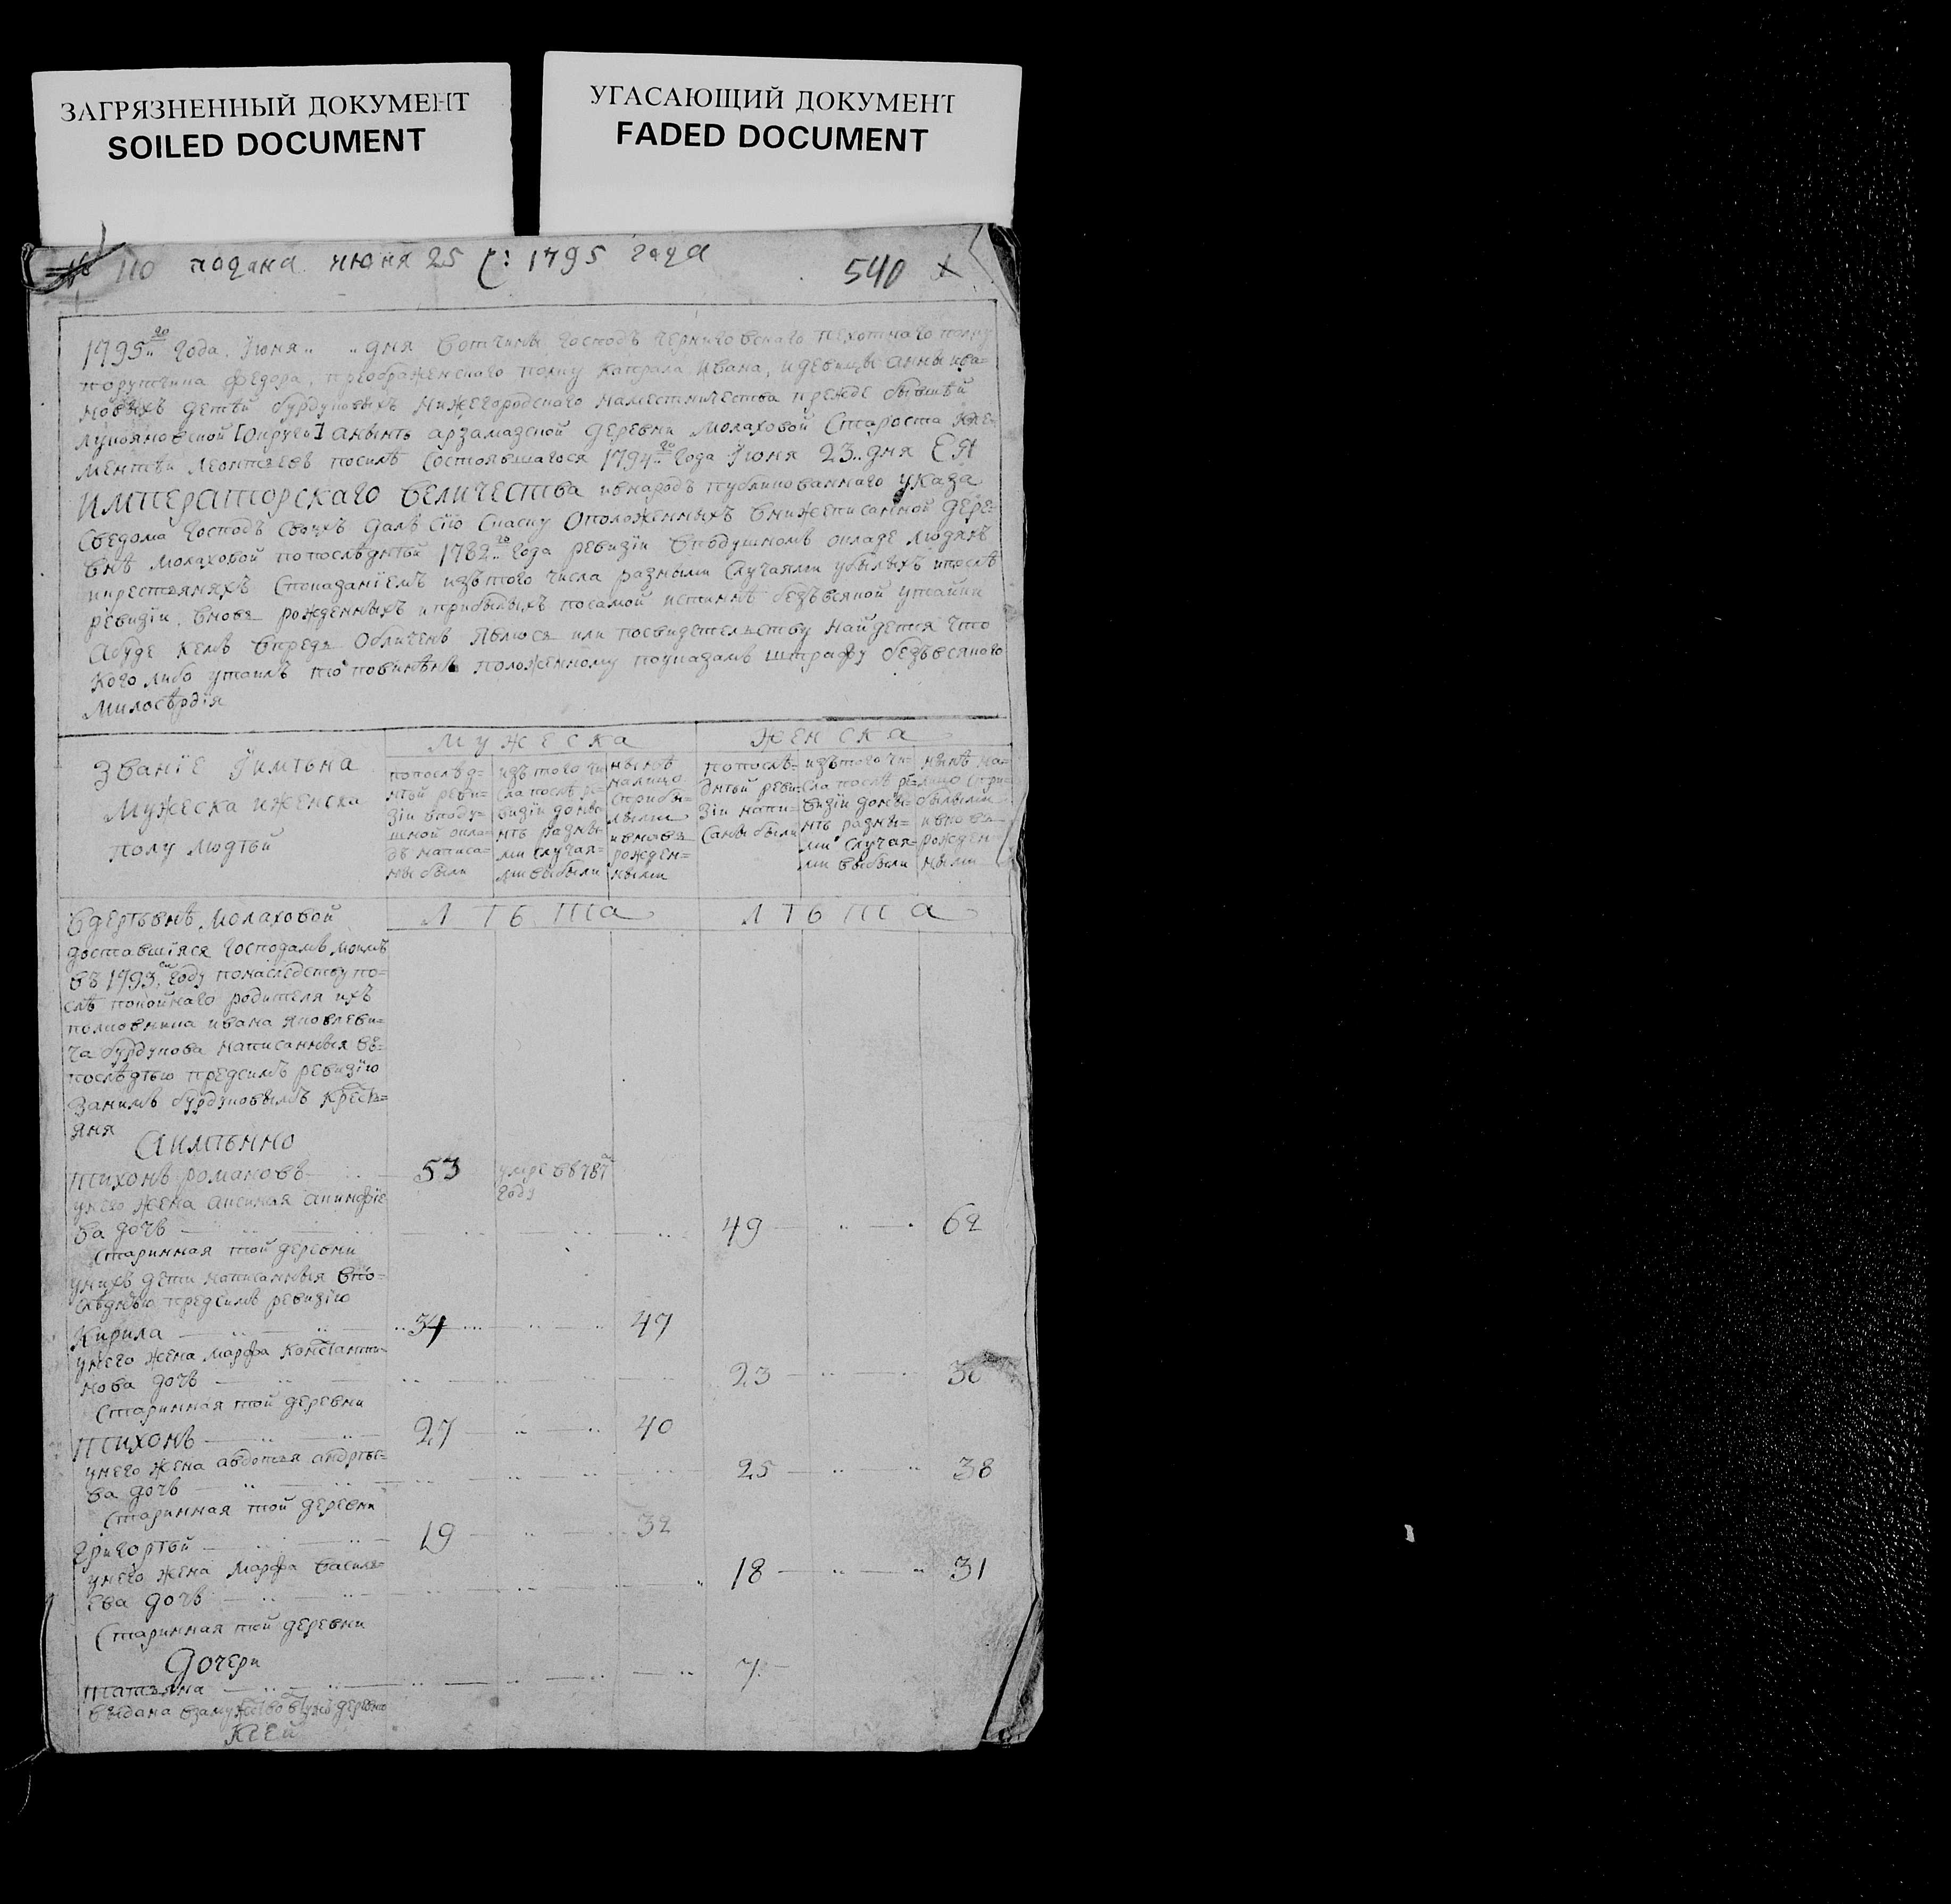 ЗАГРЯЗНЕННЫЙ ДОКУМЕНТ
SOILED DOCUMENT
УГАСАЮЩИЙ ДОКУМЕНТ
FADED DOCUMENT
110 подана июня 25 ч: 1795 года
540
1795го года Июня .. дня вотчины господъ черниговскаго пехотнаго полку
порутчика Федора, преображенскаго полку капрала Ивана, и девицы Анны ива=
новыхъ детѣй бурдуковыхъ нижегородскаго наместничества прежде бывшей
лукояновской [округи] а нынѣ арзамаской деревни Молаховой Староста Кле=
ментѣй Леонтьевъ посилѣ состоявшагося 1794го года Июня 23 дня ЕЯ
ИМПЕРАТОРСКАГО ВЕЛИЧЕСТВА ивнародъ публикованнаго указа
сведома господъ своихъ далъ сїю скаску оположенныхъ внижеписанной дере=
внѣ Молаховой попослѣднѣй 1782го года ревизїи вподушномъ окладе людяхъ
икрестьянахъ споказанїемъ изътого числа разными случаями убылыхъ ипослѣ
ревизїи вновь рожденныхъ иприбылыхъ посамой истиннѣ безъвсякой утайки
Абуде кемъ впредь обличенъ явлюся или посвидетельству найдется что
кого либо утаилъ то повиненъ положенному поуказамъ штрафу безъвсякого
милосѣрдїя
Званїе Иимѣна
Мужеска иженска
полу людѣй
Мужеска
Женска
попослѣд=
нѣй реви=
зїи вподу=
шной окла=
дъ написа=
ны были
изътого чи
сла послѣ ре=
визїи доны
нѣ разны
ми случая=
ми выбыли
нынѣ
налицо
сприбы=
лыми
ивновь
рожден=
ными
попослѣ=
днѣй реви=
зїи напи=
саны были
изътого чи=
сла послѣ ре=
визїи доны=
нѣ разны=
ми случая=
ми выбыли
нынѣ на=
лицо спри=
былыми
ивновь
рожден=
ными
Лѣта
Лѣта
Вдерѣвнѣ Молаховой
доставшїяся господамъ моимъ
въ 1793м году понаследству по=
слѣ покойнаго родителя ихъ
полковника ивана яковлеви=
ча бурдукова написанныя въ=
послѣднѣю предсимъ ревизїю
занимъ бурдуковымъ кресть=
яня
Аимѣнно
Тихонъ романовъ 53 умре въ 787м
году
унего жена аксинья
ва дочь 49 62
Старинная той деревни
унихъ дети написанныя впо=
слѣднѣю предсимъ ревизїю
Кирила 34 47
унего жена Марфа Константи=
нова дочь 23 36
Старинная той деревни
Тихонъ 27 40
унего жена авдотья андрѣе=
ва дочь 25 38
Старинная той деревни
Григорѣй 19 32
унего жена Марфа Василь=
ева дочь 18 31
Старинная той деревни
Дочери
Татьяна 7
выдана взамужство